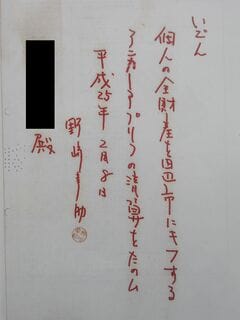 いごん
個人の全財産を田辺市にキフする
アンカーアプリコの清算をたのム
平成25年2月8日
野崎幸助
殿